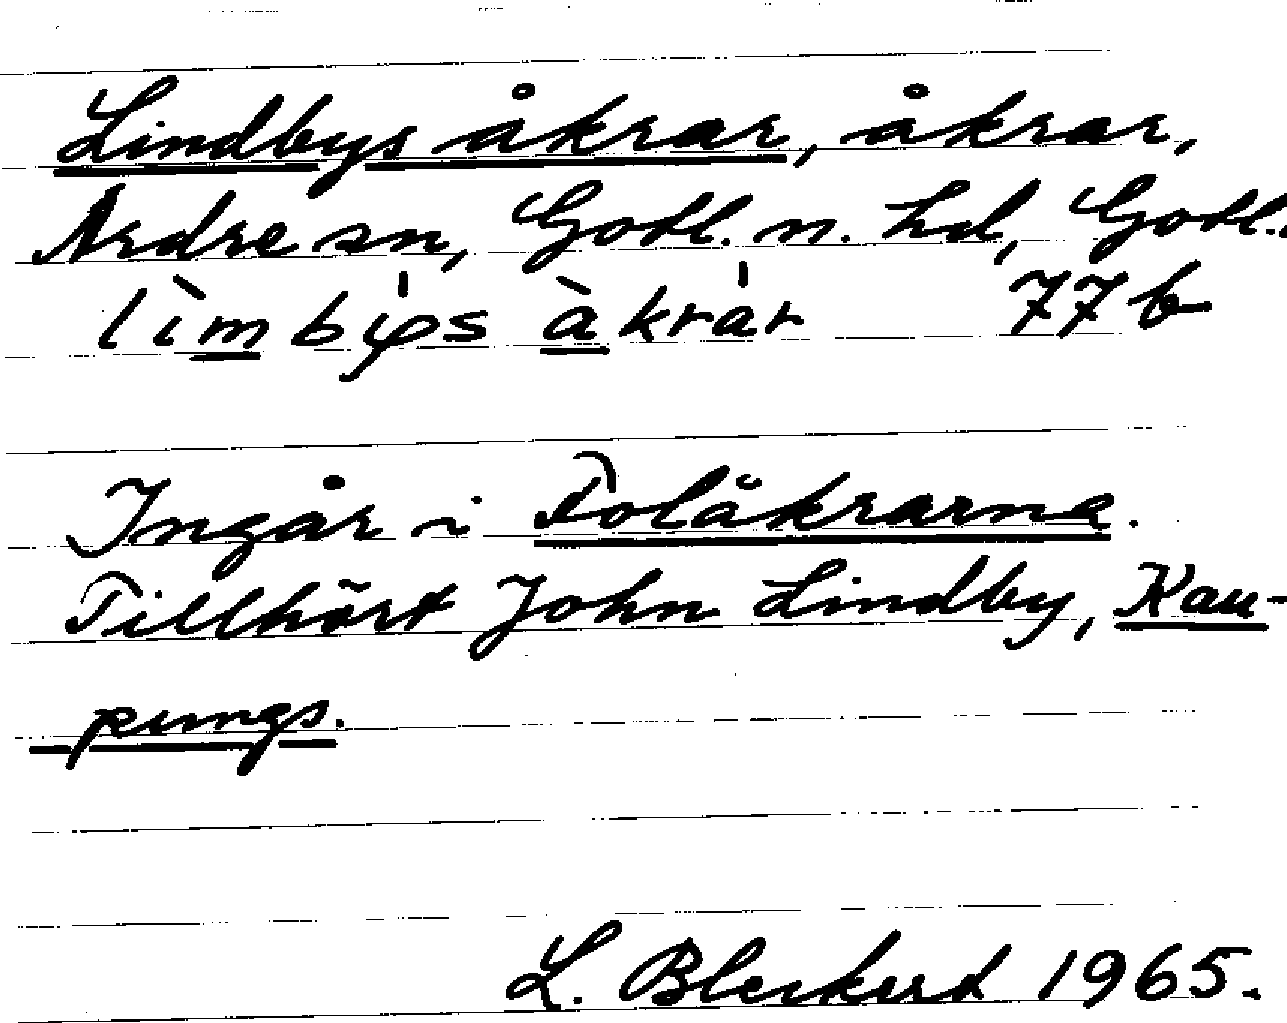 Lindbys åkrar, åkrar,
Ardre sn, Gotl. n. hd, Gotl.
lìmbýs àkrár 77 b
Ingår i Tolåkrarna.
Tillhört John Lindby, Kau-
pungs.
L. Bleckert 1965.